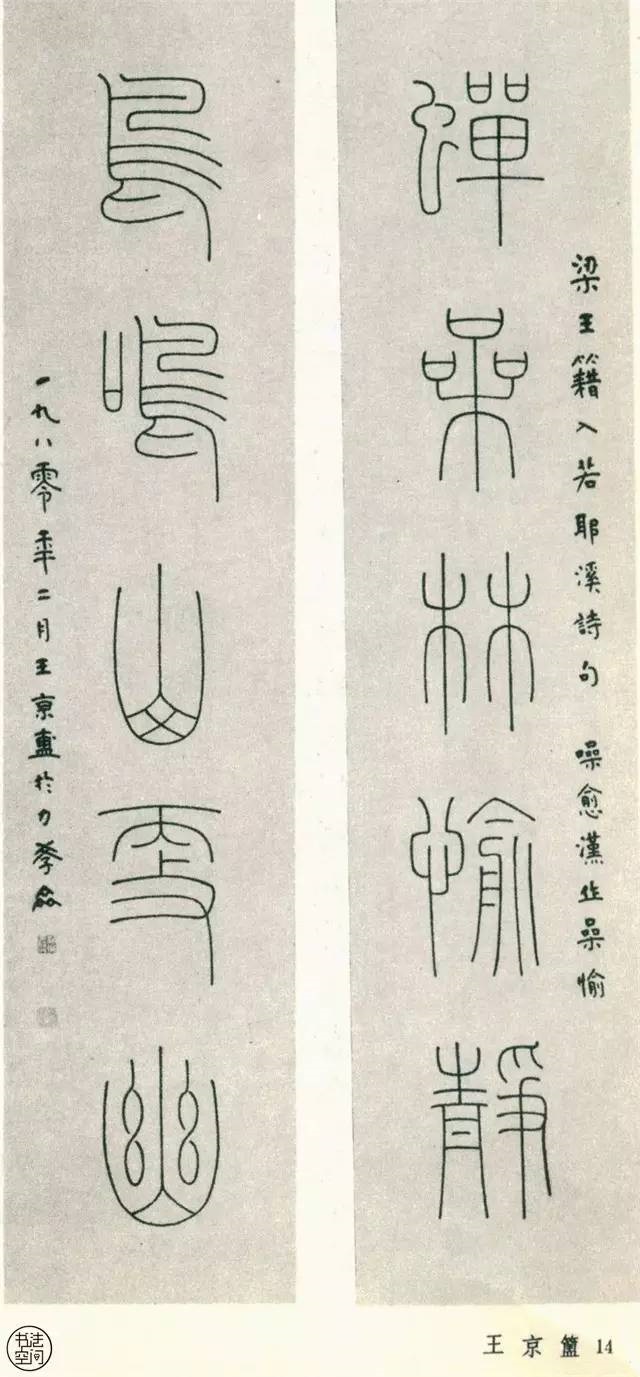 蟬喿林愉靜
梁王籍入若耶溪詩句 噪愈漢作喿愉
鳥鳴山更幽
一九八零年二月王京盙於力盦
王京簠 14
书法
空间